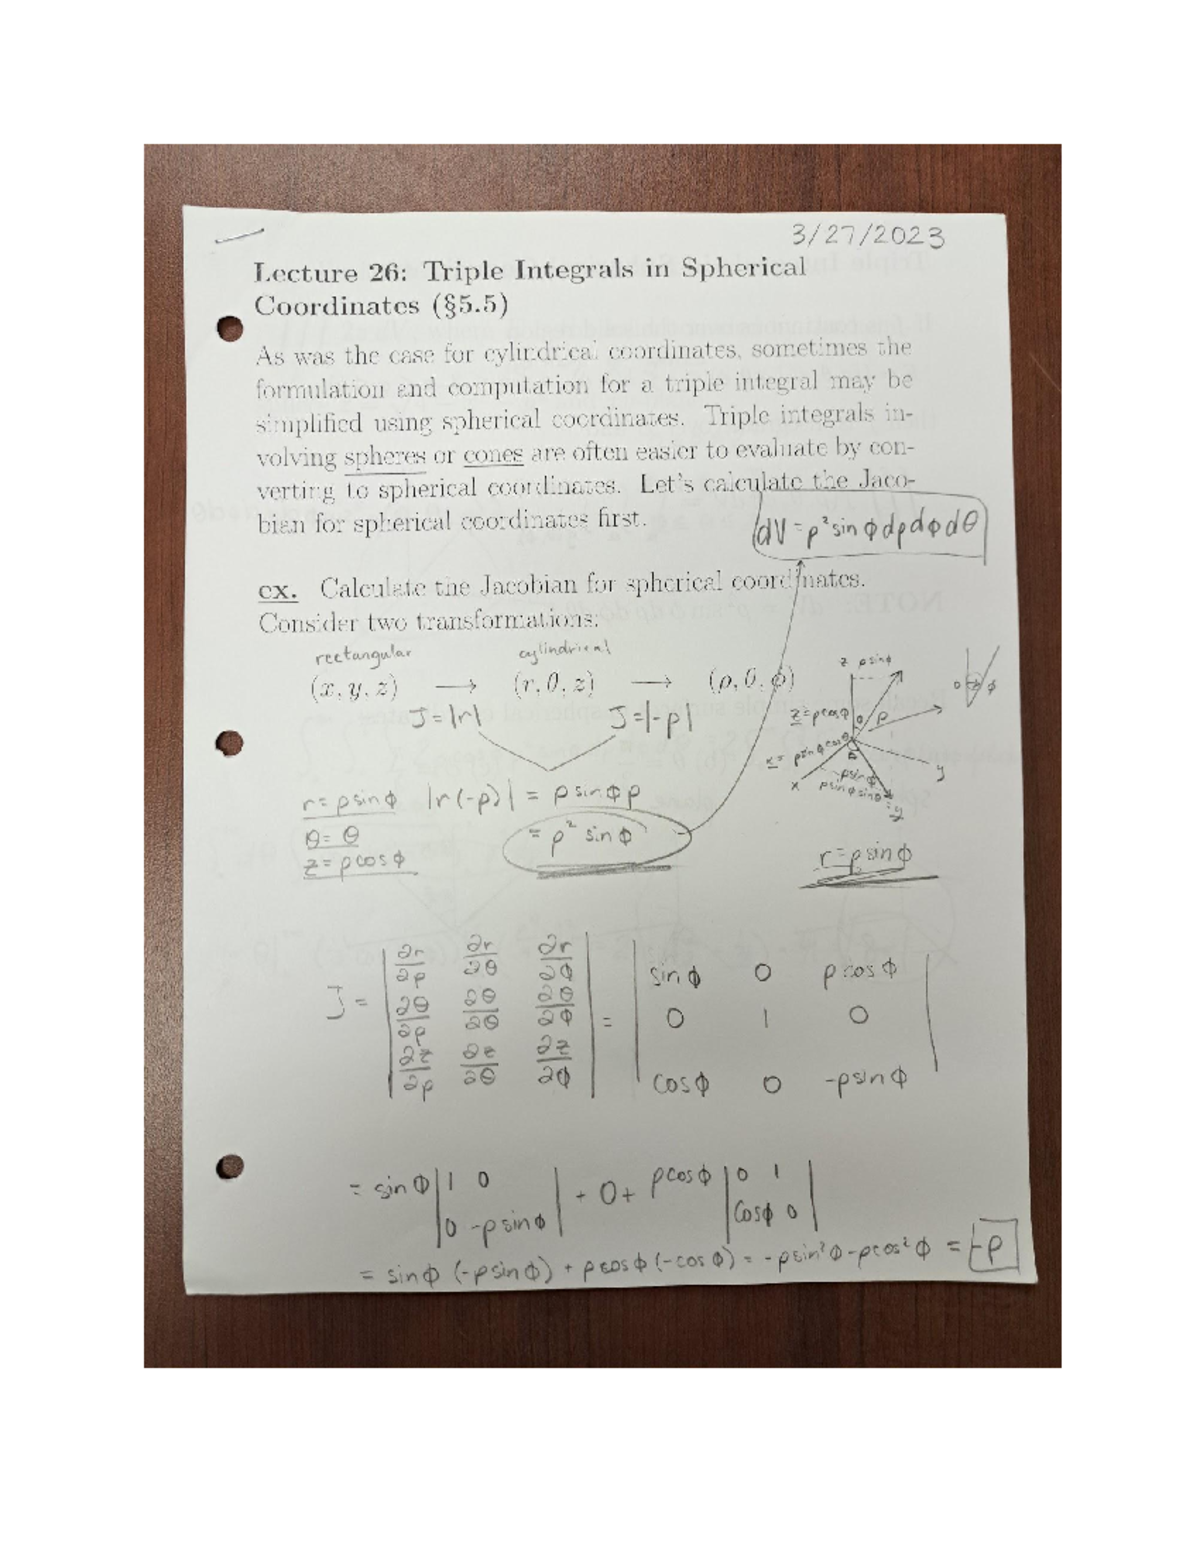 3/27/2023
Lecture 26: Triple Integrals in Spherical
Coordinates (§5.5)
As was the case for cylindrical coordinates, sometimes the
formulation and computation for a triple integral may be
simplified using spherical coordinates. Triple integrals in-
volving spheres or cones are often easier to evaluate by con-
verting to spherical coordinates. Let's calculate the Jaco-
bian for spherical coordinates first.
dV = ρ² sin ϕ dρ dϕ dθ
ex. Calculate the Jacobian for spherical coordinates.
Consider two transformations:
rectangular cylindrical
(x, y, z) → (r, θ, z) → (ρ, θ, ϕ)
J = |r| J = |-ρ|
z ρ sin ϕ
z = ρ cos ϕ ρ
x = ρ sin ϕ cos θ
y
x ρ sin ϕ
ρ sin ϕ sin θ = y
r = ρ sin ϕ |r(-ρ)| = ρ sin ϕ ρ
θ = θ = ρ² sin ϕ
z = ρ cos ϕ
r = ρ sin ϕ
J = | ∂r/∂ρ ∂r/∂θ ∂r/∂ϕ | = | sin ϕ 0 ρ cos ϕ |
| ∂θ/∂ρ ∂θ/∂θ ∂θ/∂ϕ | | 0 1 0 |
| ∂z/∂ρ ∂z/∂θ ∂z/∂ϕ | | cos ϕ 0 -ρ sin ϕ |
= sin ϕ | 1 0 | + 0 + ρ cos ϕ | 0 1 |
| 0 -ρ sin ϕ | | cos ϕ 0 |
= sin ϕ (-ρ sin ϕ) + ρ cos ϕ (-cos ϕ) = -ρ sin² ϕ - ρ cos² ϕ = -ρ